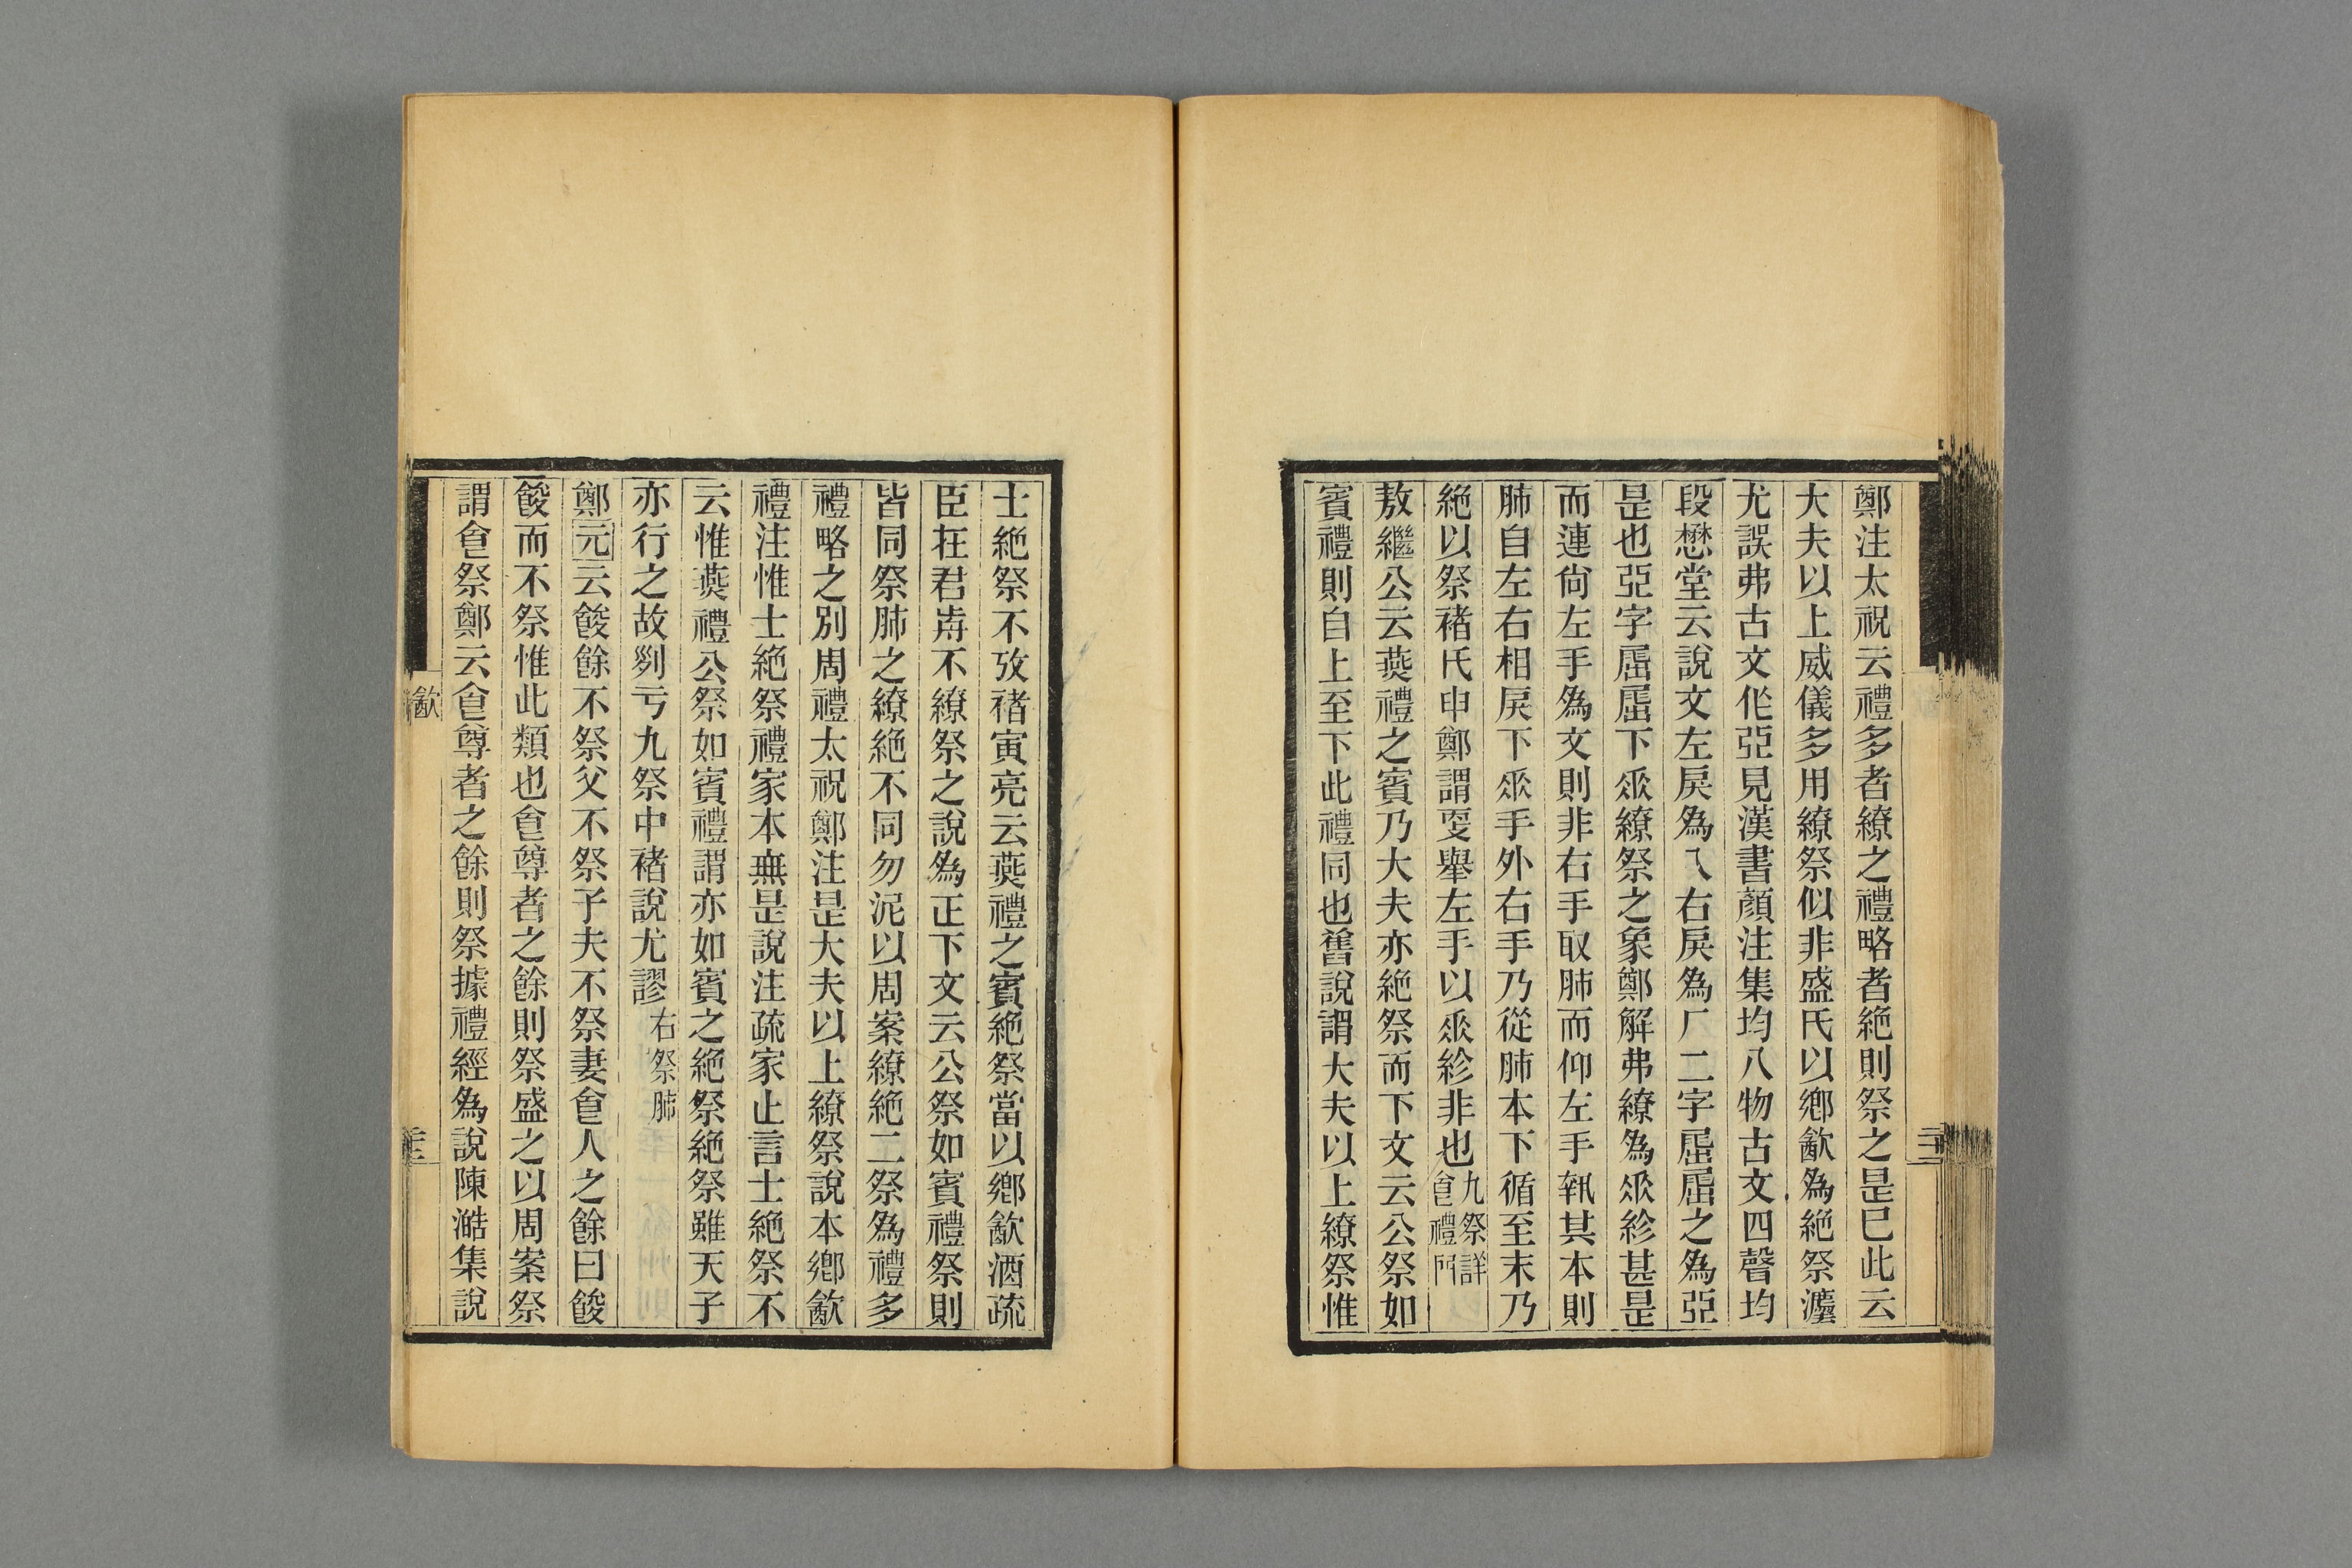 鄭注太祝云禮多者繚之禮略者絶則祭之是巳此云
大夫以上威儀多用繚祭似非盛氏以鄕㱃爲絶祭瀍
尤誤弗古文作亞見漢書顏注集均八物古文四聲均
段懋堂云說文左戾爲乀右戾爲厂二字屈屈之爲亞
是也亞字屈屈下𠂢繚祭之象鄭解弗繚爲𠂢紾甚是
而連尙左手爲文則非右手取肺而仰左手執其本則
肺自左右相戾下𠂢手外右手乃從肺本下循至末乃
絶以祭褚氏申鄭謂㪅舉左手以𠂢紾非也九祭詳
𠊊禮門
敖繼公云燕禮之賓乃大夫亦絶祭而下文云公祭如
賓禮則自上至下此禮同也舊說謂大夫以上繚祭惟
士絶祭不攷褚寅亮云燕禮之賓絶祭當以鄕㱃酒疏
臣在君歬不繚祭之說爲正下文云公祭如賓禮祭則
皆同祭肺之繚絶不同勿泥以周案繚絶二祭爲禮多
禮略之別周禮太祝鄭注是大夫以上繚祭說本鄕㱃
禮注惟士絶祭禮家本無是說注疏家止言士絶祭不
云惟燕禮公祭如賓禮謂亦如賓之絶祭絶祭雖天子
亦行之故𠛱亏九祭中褚說尤謬右祭肺
鄭元云餕餘不祭父不祭子夫不祭妻𠊊人之餘曰餕
餕而不祭惟此類也𠊊尊者之餘則祭盛之以周案祭
謂𠊊祭鄭云𠊊尊者之餘則祭據禮經爲說陳澔集說
㱃